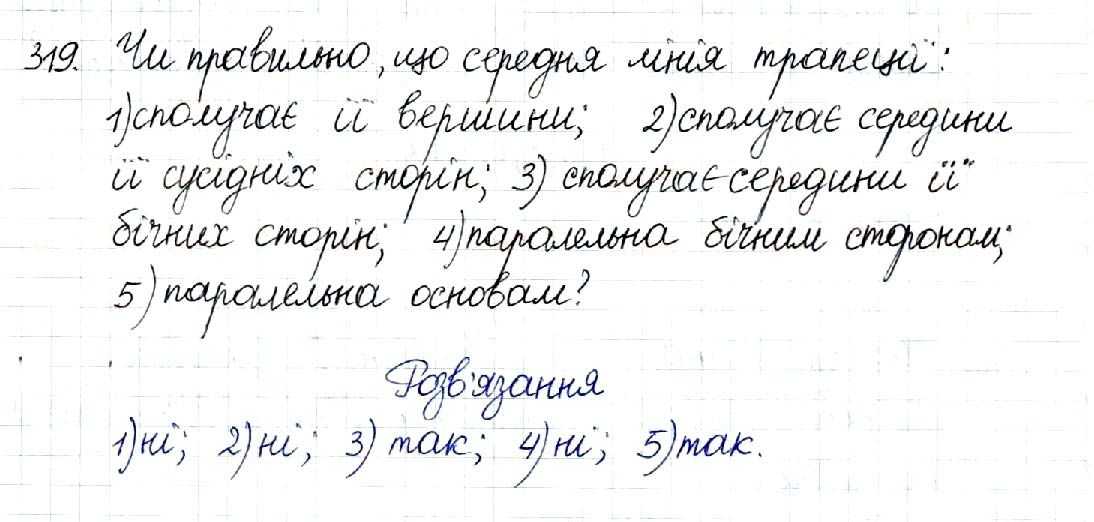 319. Чи правильно, що середня лінія трапеції:
1) сполучає її вершини; 2) сполучає середини
її сусідніх сторін; 3) сполучає середини її
бічних сторін; 4) паралельна бічним сторонам;
5) паралельна основам?
Розв'язання
1) ні; 2) ні; 3) так; 4) ні; 5) так.